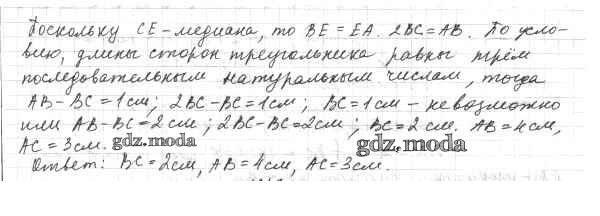 Поскольку CE-медиана, то BE = EA. 2BC = AB. По усло-
вию, длины сторон треугольника равны трём
последовательным натуральным числам, тогда
AB - BC = 1 см; 2BC - BC = 1 см; BC = 1 см - невозможно
или AB - BC = 2 см; 2BC - BC = 2 см; BC = 2 см. AB = 4 см,
AC = 3 см. gdz.moda gdz.moda
Ответ: BC = 2 см, AB = 4 см, AC = 3 см.